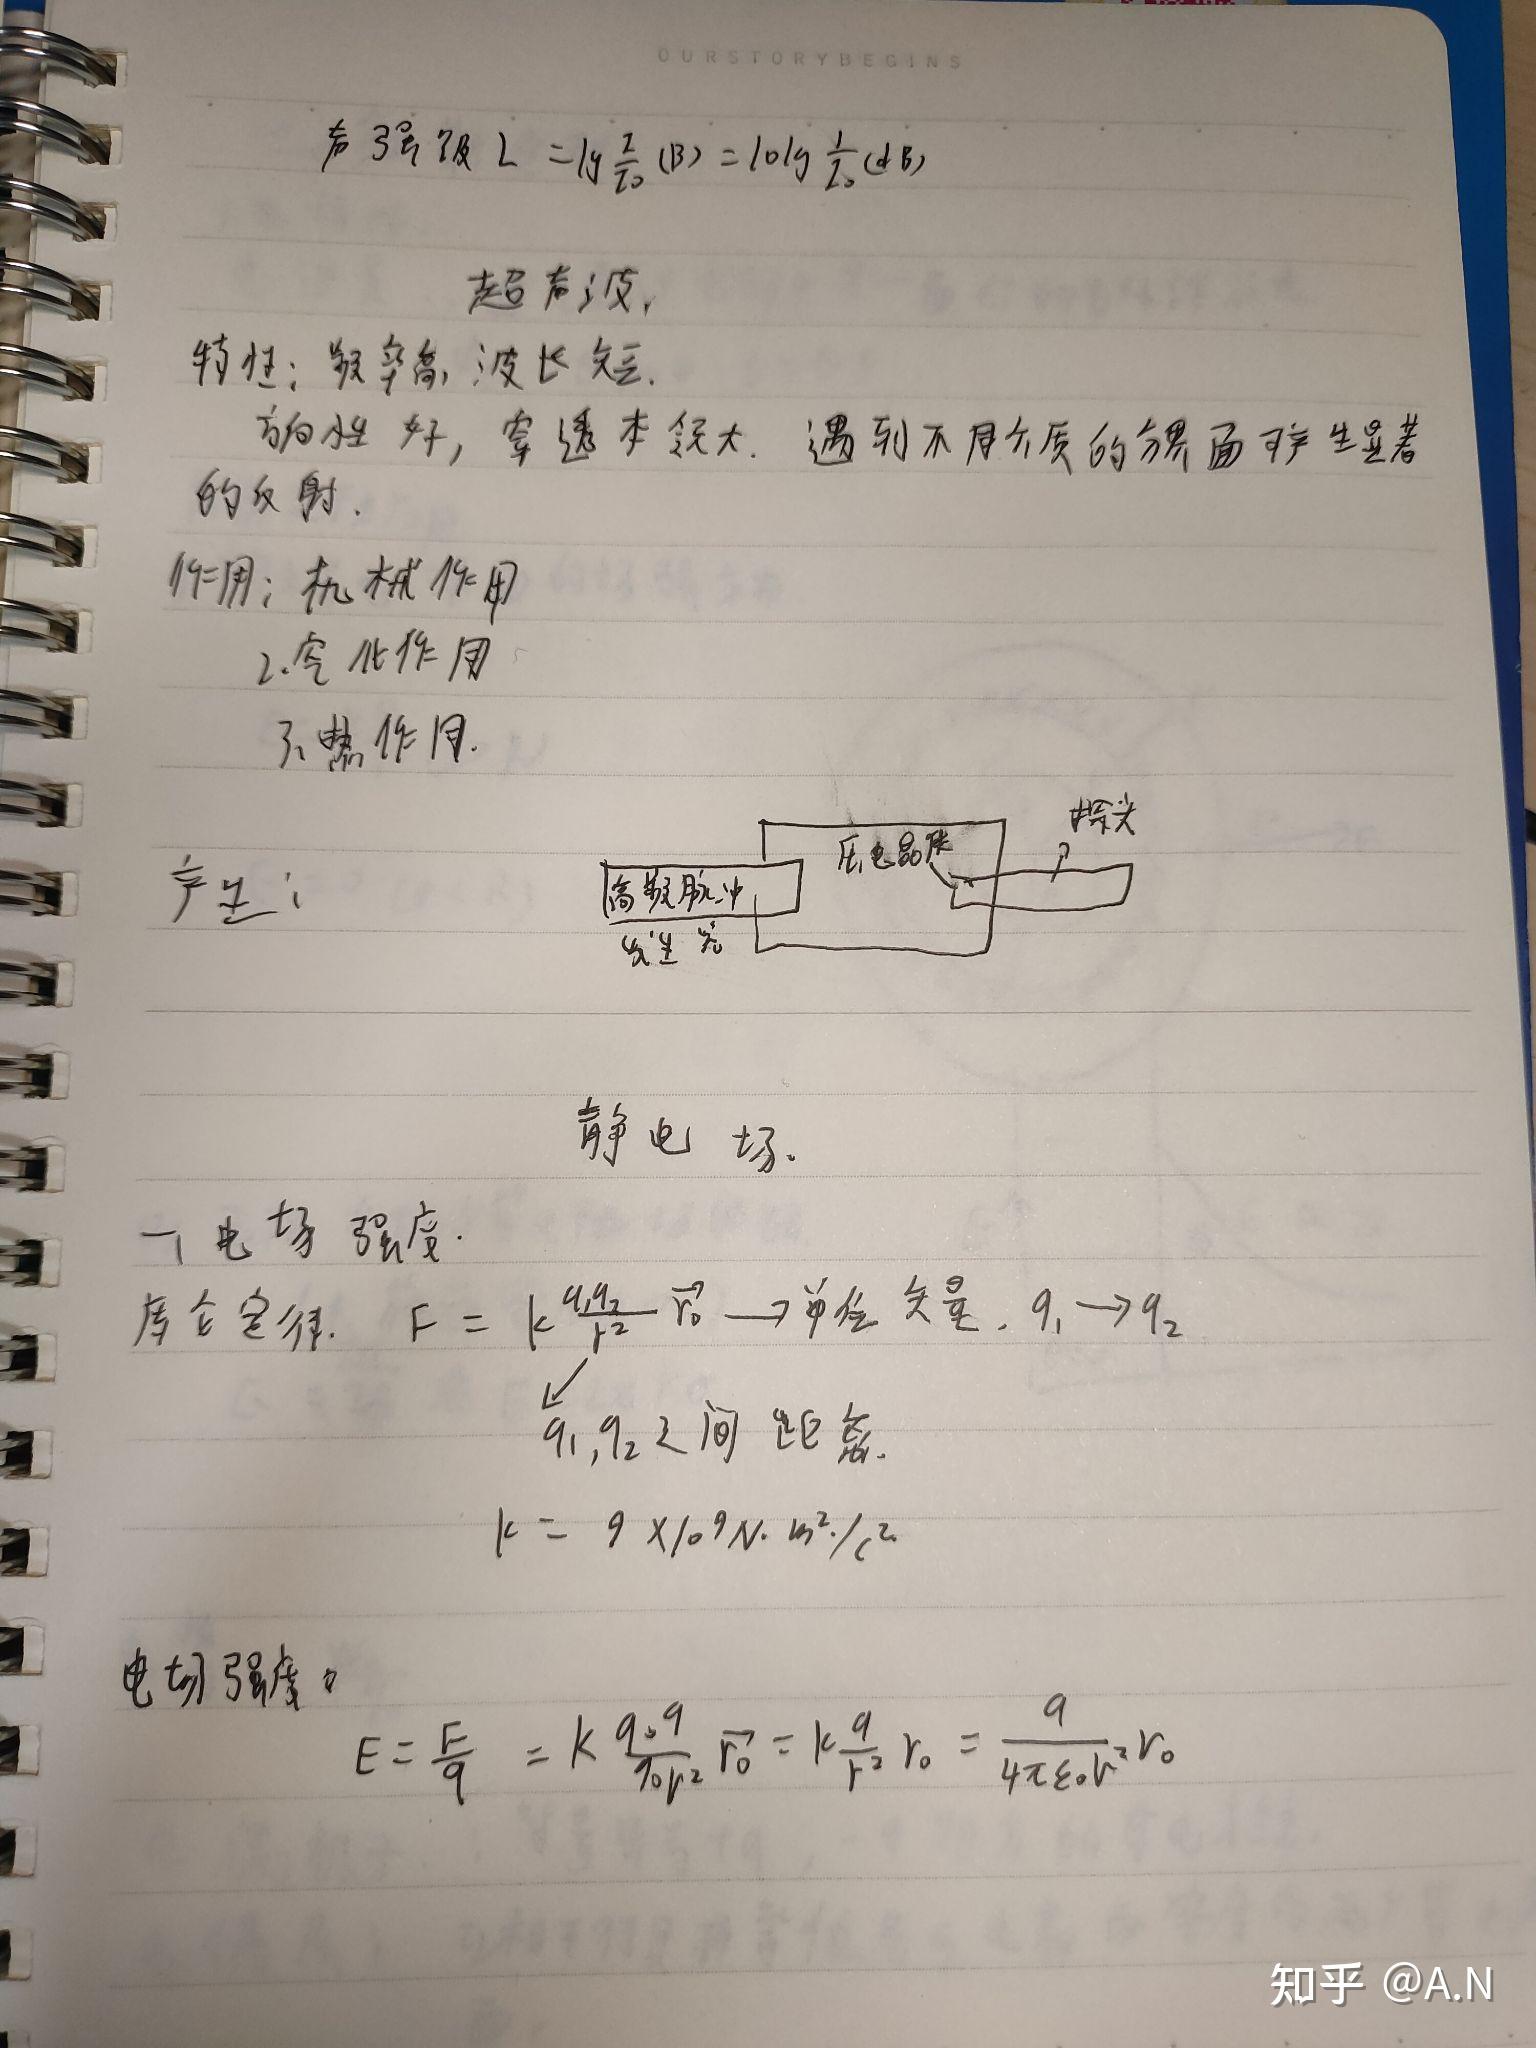 OURSTORYBEGINS
声强级 L = lg I/I₀ (B) = 10lg I/I₀ (dB)
超声波.
特性: 频率高, 波长短.
方向性好, 穿透本领大. 遇到不同介质的分界面时产生显著
的反射.
作用: 机械作用
2. 空化作用
3. 热作用.
产生:
探头
压电晶体
高频脉冲
发生器
静电场.
一、电场强度.
库仑定律. F = k q₁q₂/r² r⃗₀ → 单位矢量. q₁ → q₂
q₁, q₂之间距离.
k = 9×10⁹ N·m²/C²
电场强度。
E = F/q = k q₀q/q₀r² r⃗₀ = k q/r² r₀ = q/4πε₀r² r₀
知乎 @A.N